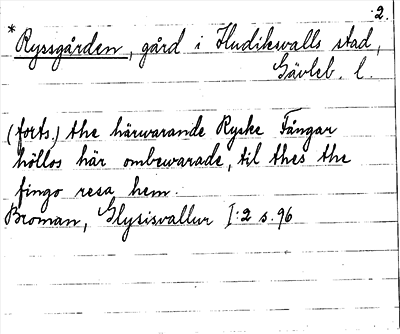 2.
*Ryssgården, gård i Hudiksvalls stad,
Gävleb. l.
(forts.) the härwarande Ryske Fångar
höllos här ombewarade, til thes the
fingo resa hem.
Broman, Glysisvallur I:2 s. 96